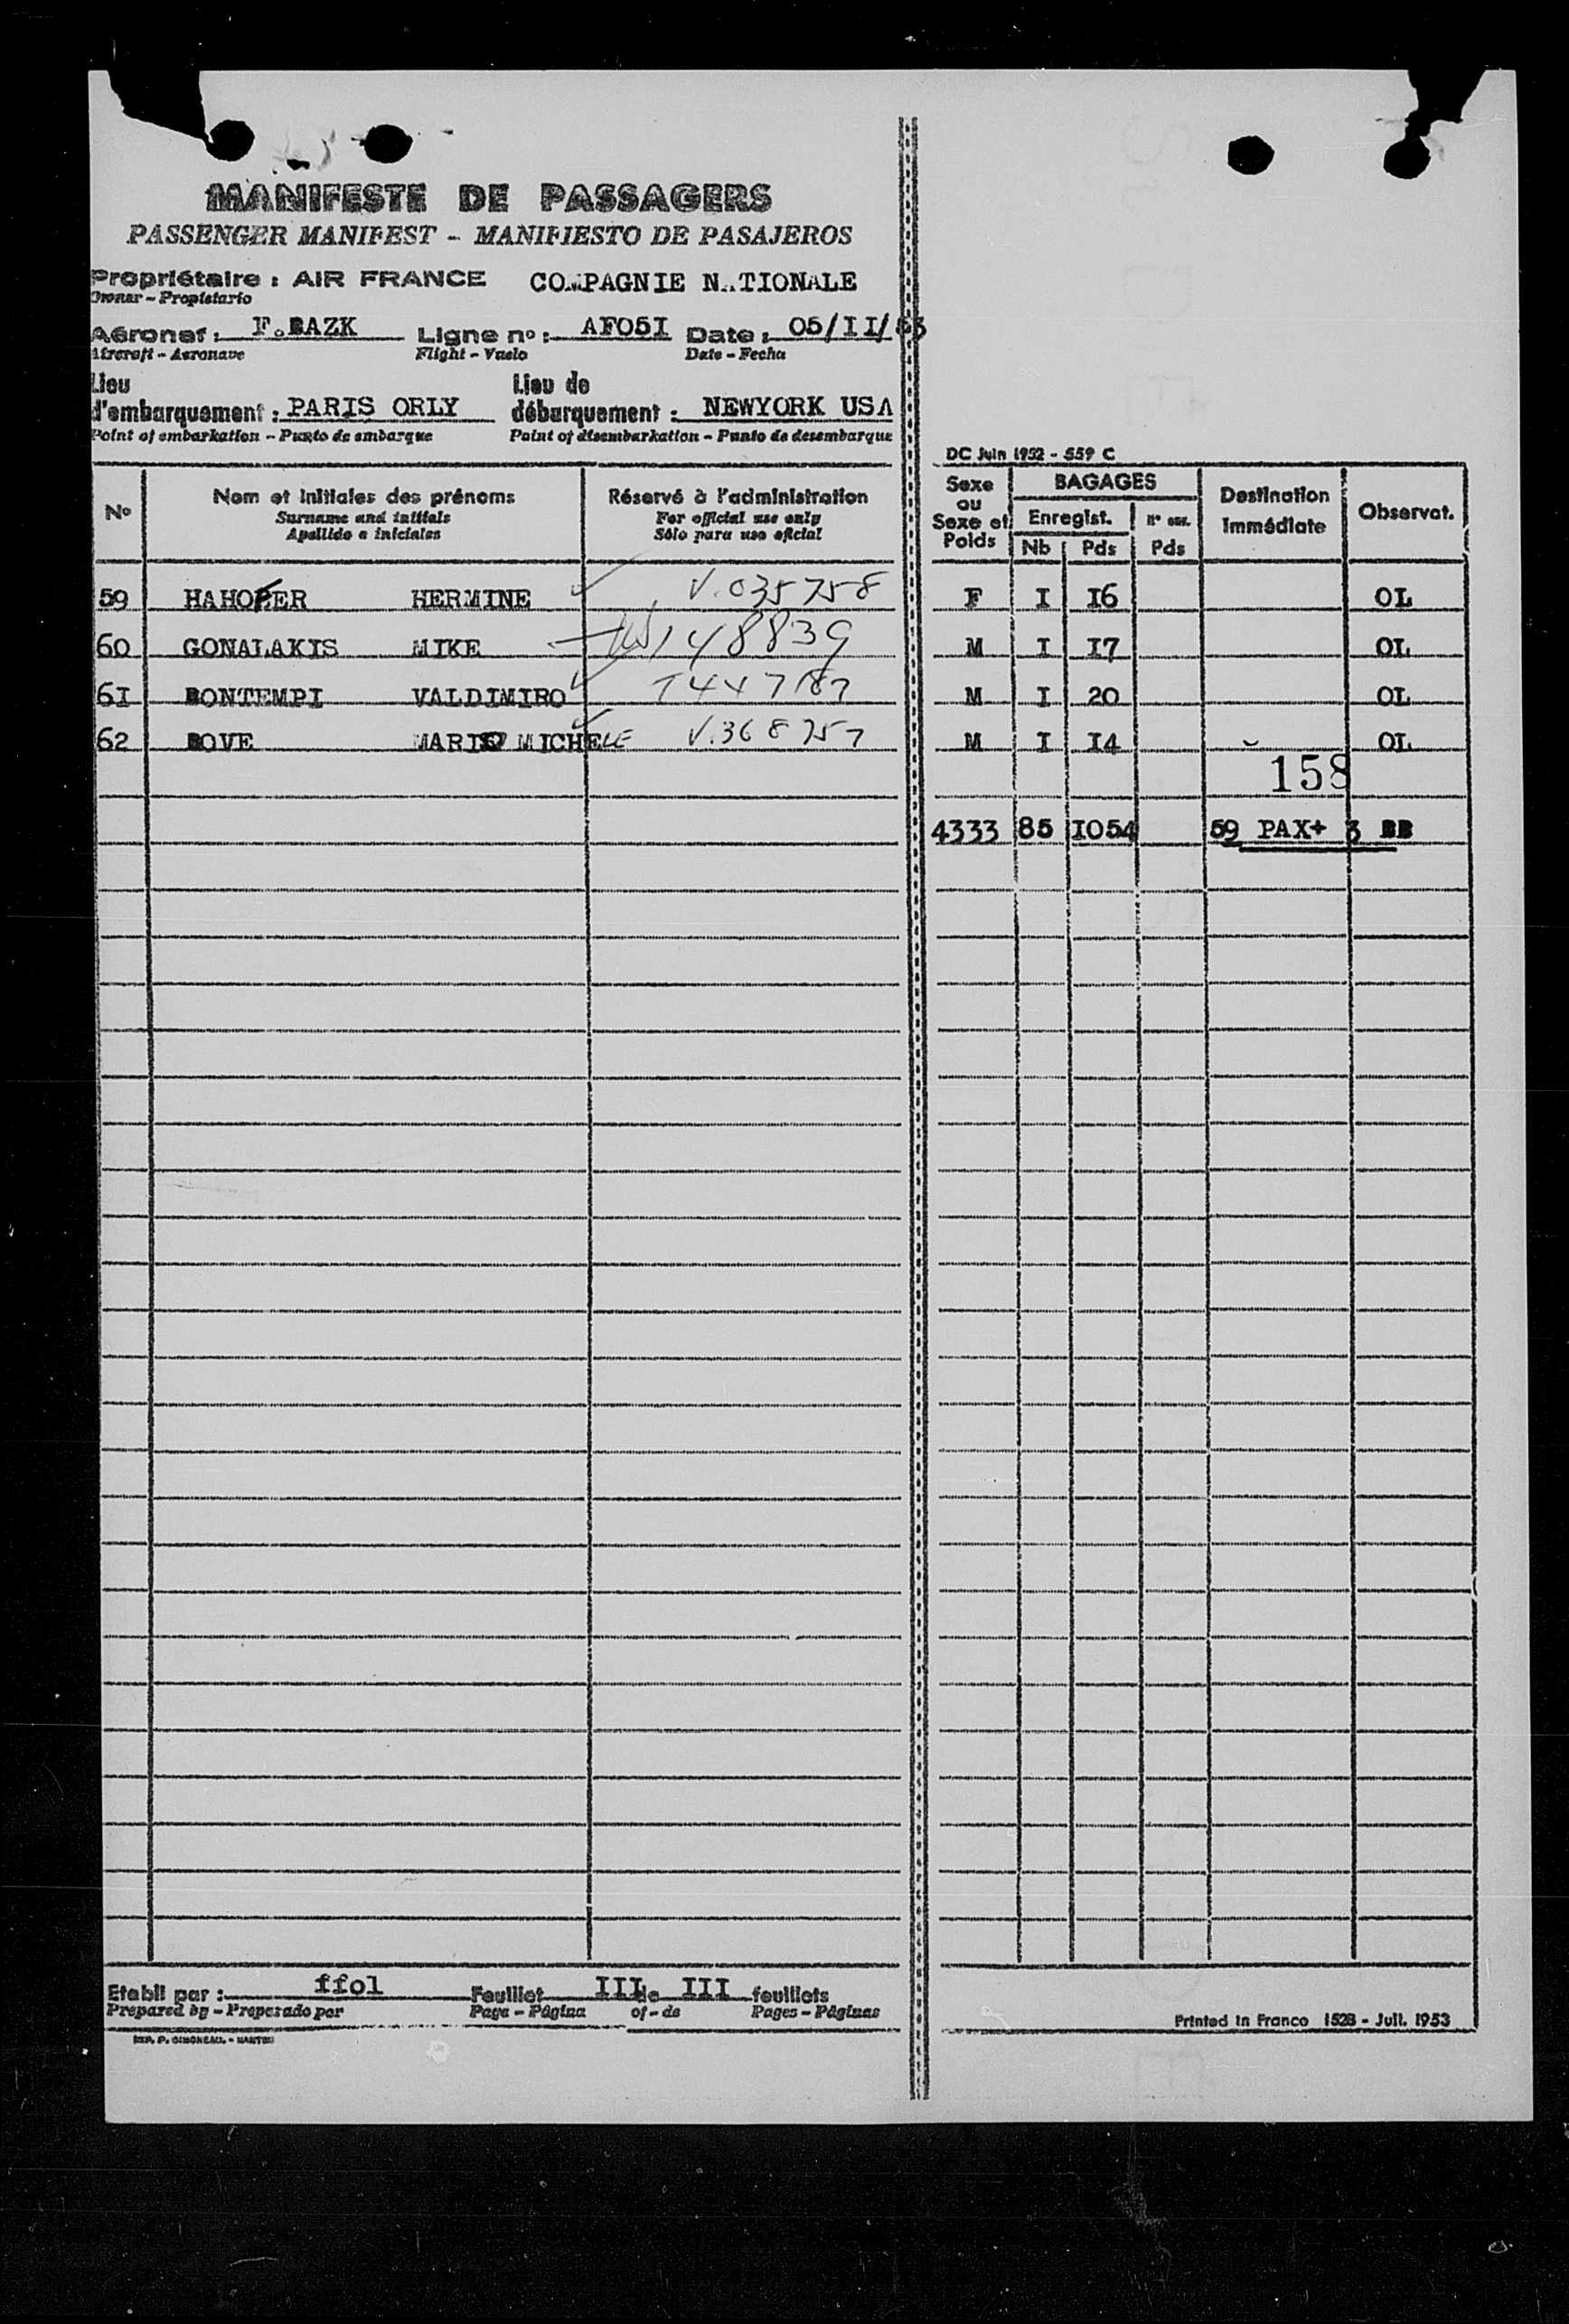 MANIFESTE DE PASSAGERS
PASSENGER MANIFEST - MANIFIESTO DE PASAJEROS
Propriétaire : AIR FRANCE COMPAGNIE NATIONALE
Owner - Propietario
Aéronef : F.BAZK Ligne no : AF05I Date : 05/II/53
Aircraft - Aeronave Flight - Vuelo Date - Fecha
Lieu d'embarquement : PARIS ORLY Lieu de débarquement : NEWYORK USA
Point of embarkation - Punto de embarque Point of disembarkation - Punto de desembarque
DC Juin 1952 - 559 C
No Nom et initiales des prénoms Réservé à l'administration Sexe ou Sexe et Poids BAGAGES Destination immédiate Observat.
Surname and initials For official use only Enregist.
Apellido e iniciales Sólo para uso oficial Nb Pds Pds
59 HAHOFER HERMINE V.035758 F I I6 OL
60 GONALAKIS MIKE 148839 M I I7 OL
6I BONTEMPI VALDIMIRO M I 20 OL
62 BOVE MARIO MICHELE V.368757 M I I4 OL
158
4333 85 I054 59 PAX+ 3 BB
Etabli par : ffol Feuillet III de III feuillets
Prepared by - Preparado por Page - Página of - de Pages - Páginas
Printed in France 1528 - Juil. 1953
IMP. P. SIMONEAU. - NANTES